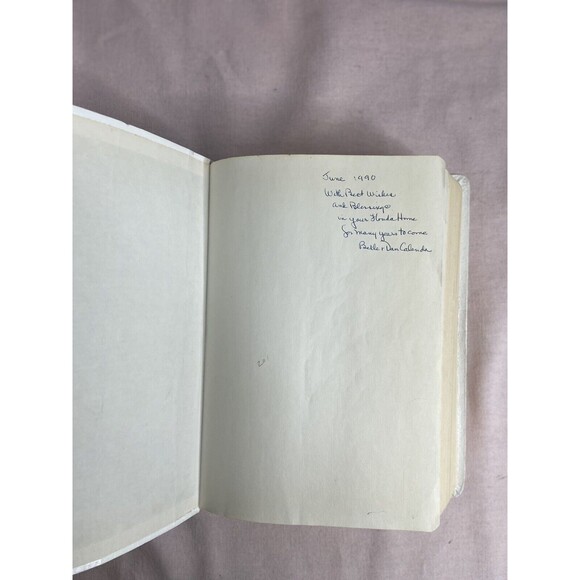 June 1990
With Best Wishes
and Blessings
in your Florida Home
for many years to come
Belle + Dan